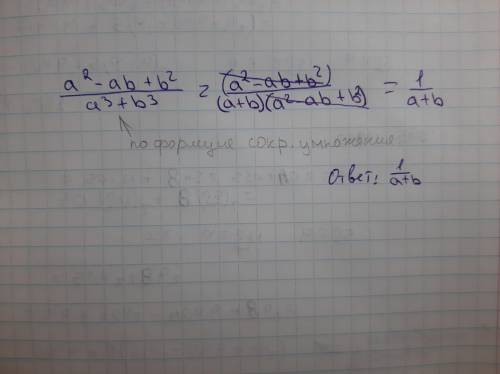 (a² - ab + b²)/(a³ + b³) = (a² - ab + b²)/((a+b)(a² - ab + b²)) = 1/(a+b)
по формуле сокр. умножения
Ответ: 1/(a+b)